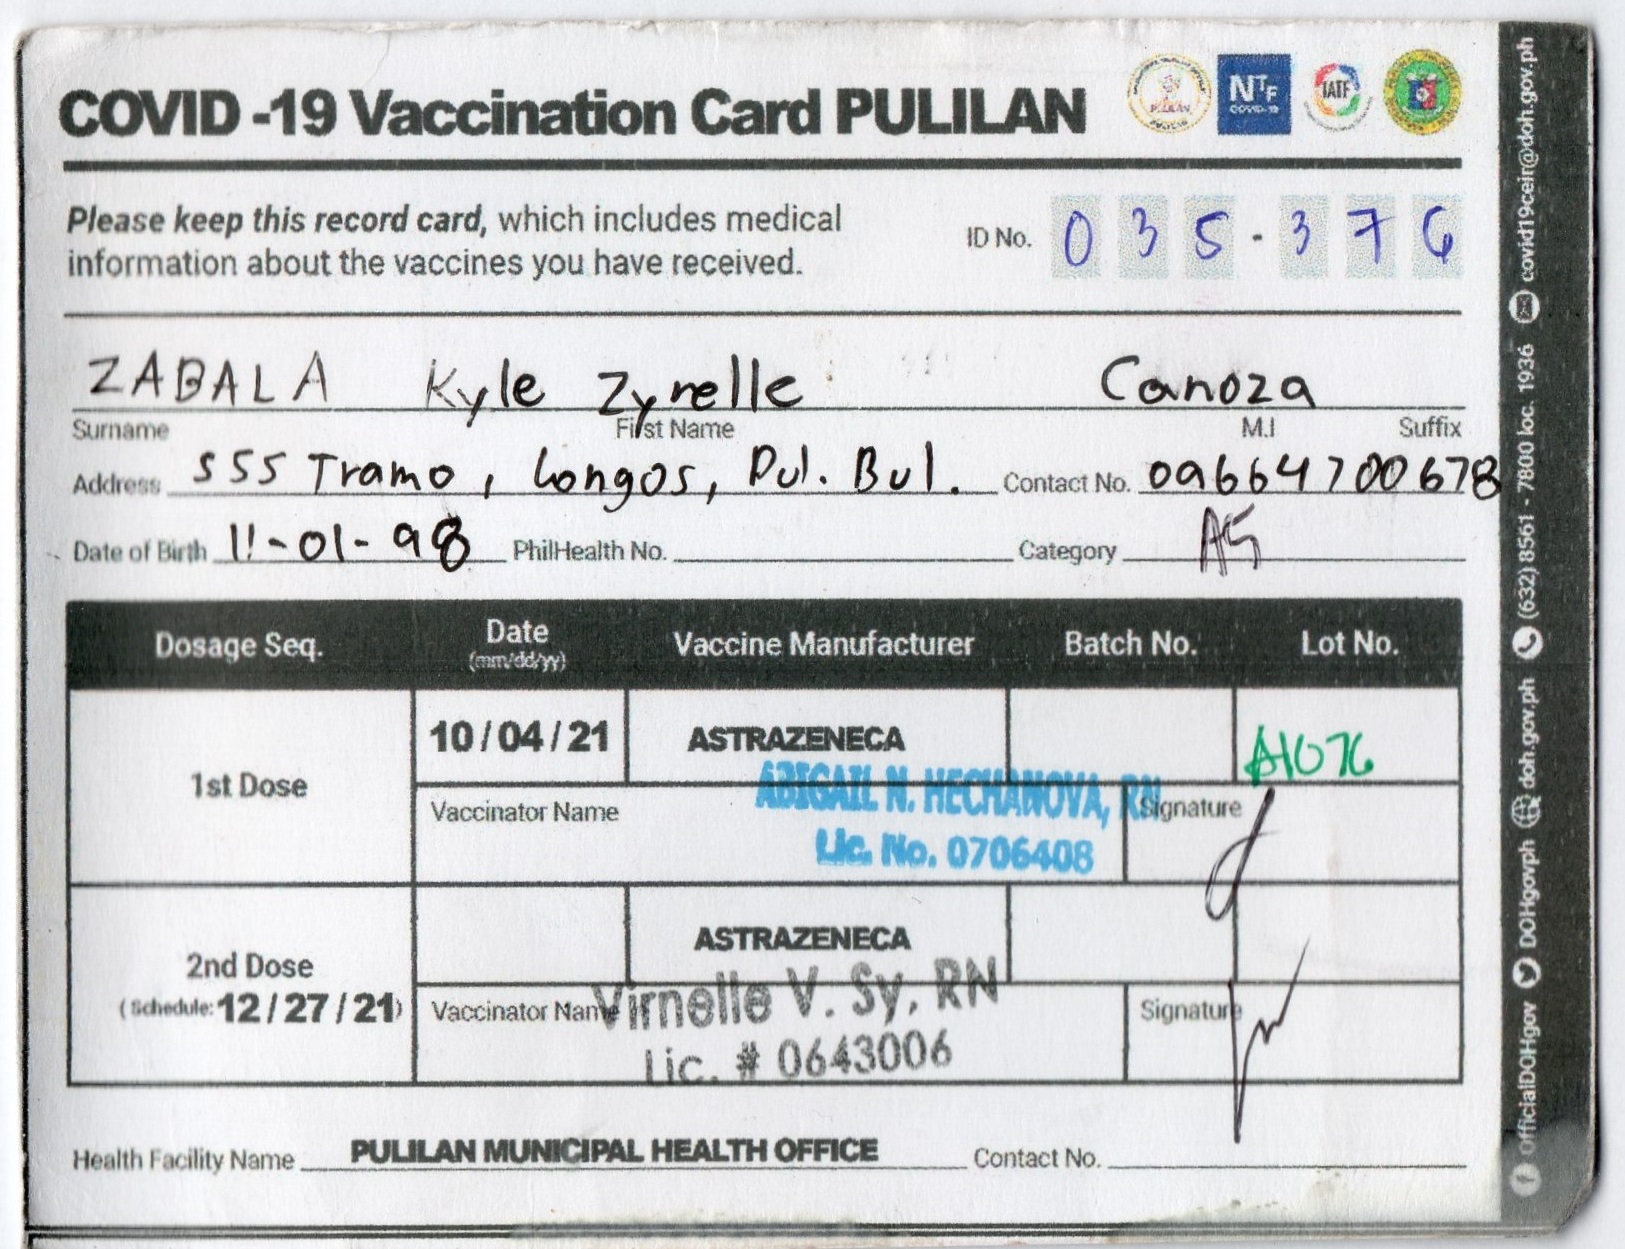 COVID -19 Vaccination Card PULILAN
PULILAN
NTF
COVID-19
IATF
Please keep this record card, which includes medical
information about the vaccines you have received.
ID No. 0 3 5 - 3 7 6
ZABALA Kyle Zyrelle Canoza
Surname First Name M.I Suffix
Address 555 Tramo, Longos, Pul. Bul. Contact No. 09664700678
Date of Birth 11-01-98 PhilHealth No. Category A5
Dosage Seq. Date (mm/dd/yy) Vaccine Manufacturer Batch No. Lot No.
1st Dose 10/04/21 ASTRAZENECA A1076
Vaccinator Name ABIGAIL N. HECHANOVA, RN Signature
Lic. No. 0706408
2nd Dose ASTRAZENECA
(Schedule: 12/27/21) Vaccinator Name Virnelle V. Sy, RN Signature
Lic. # 0643006
Health Facility Name PULILAN MUNICIPAL HEALTH OFFICE Contact No.
OfficialDOHgov DOHgovph doh.gov.ph (632) 8561 - 7800 loc. 1936 covid19ceir@doh.gov.ph